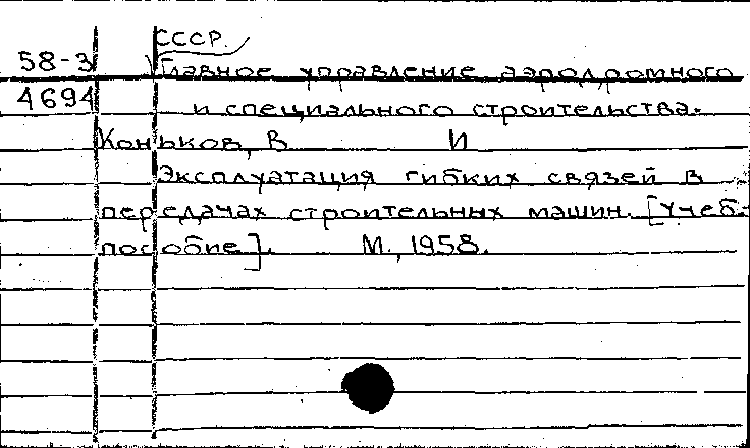 СССР.
58-3 Главное управление аэродромного
4694 и специального строительства.
Коньков, В И
Эксплуатация гибких связей в
передачах строительных машин. [Учеб.
пособие]. М., 1958.